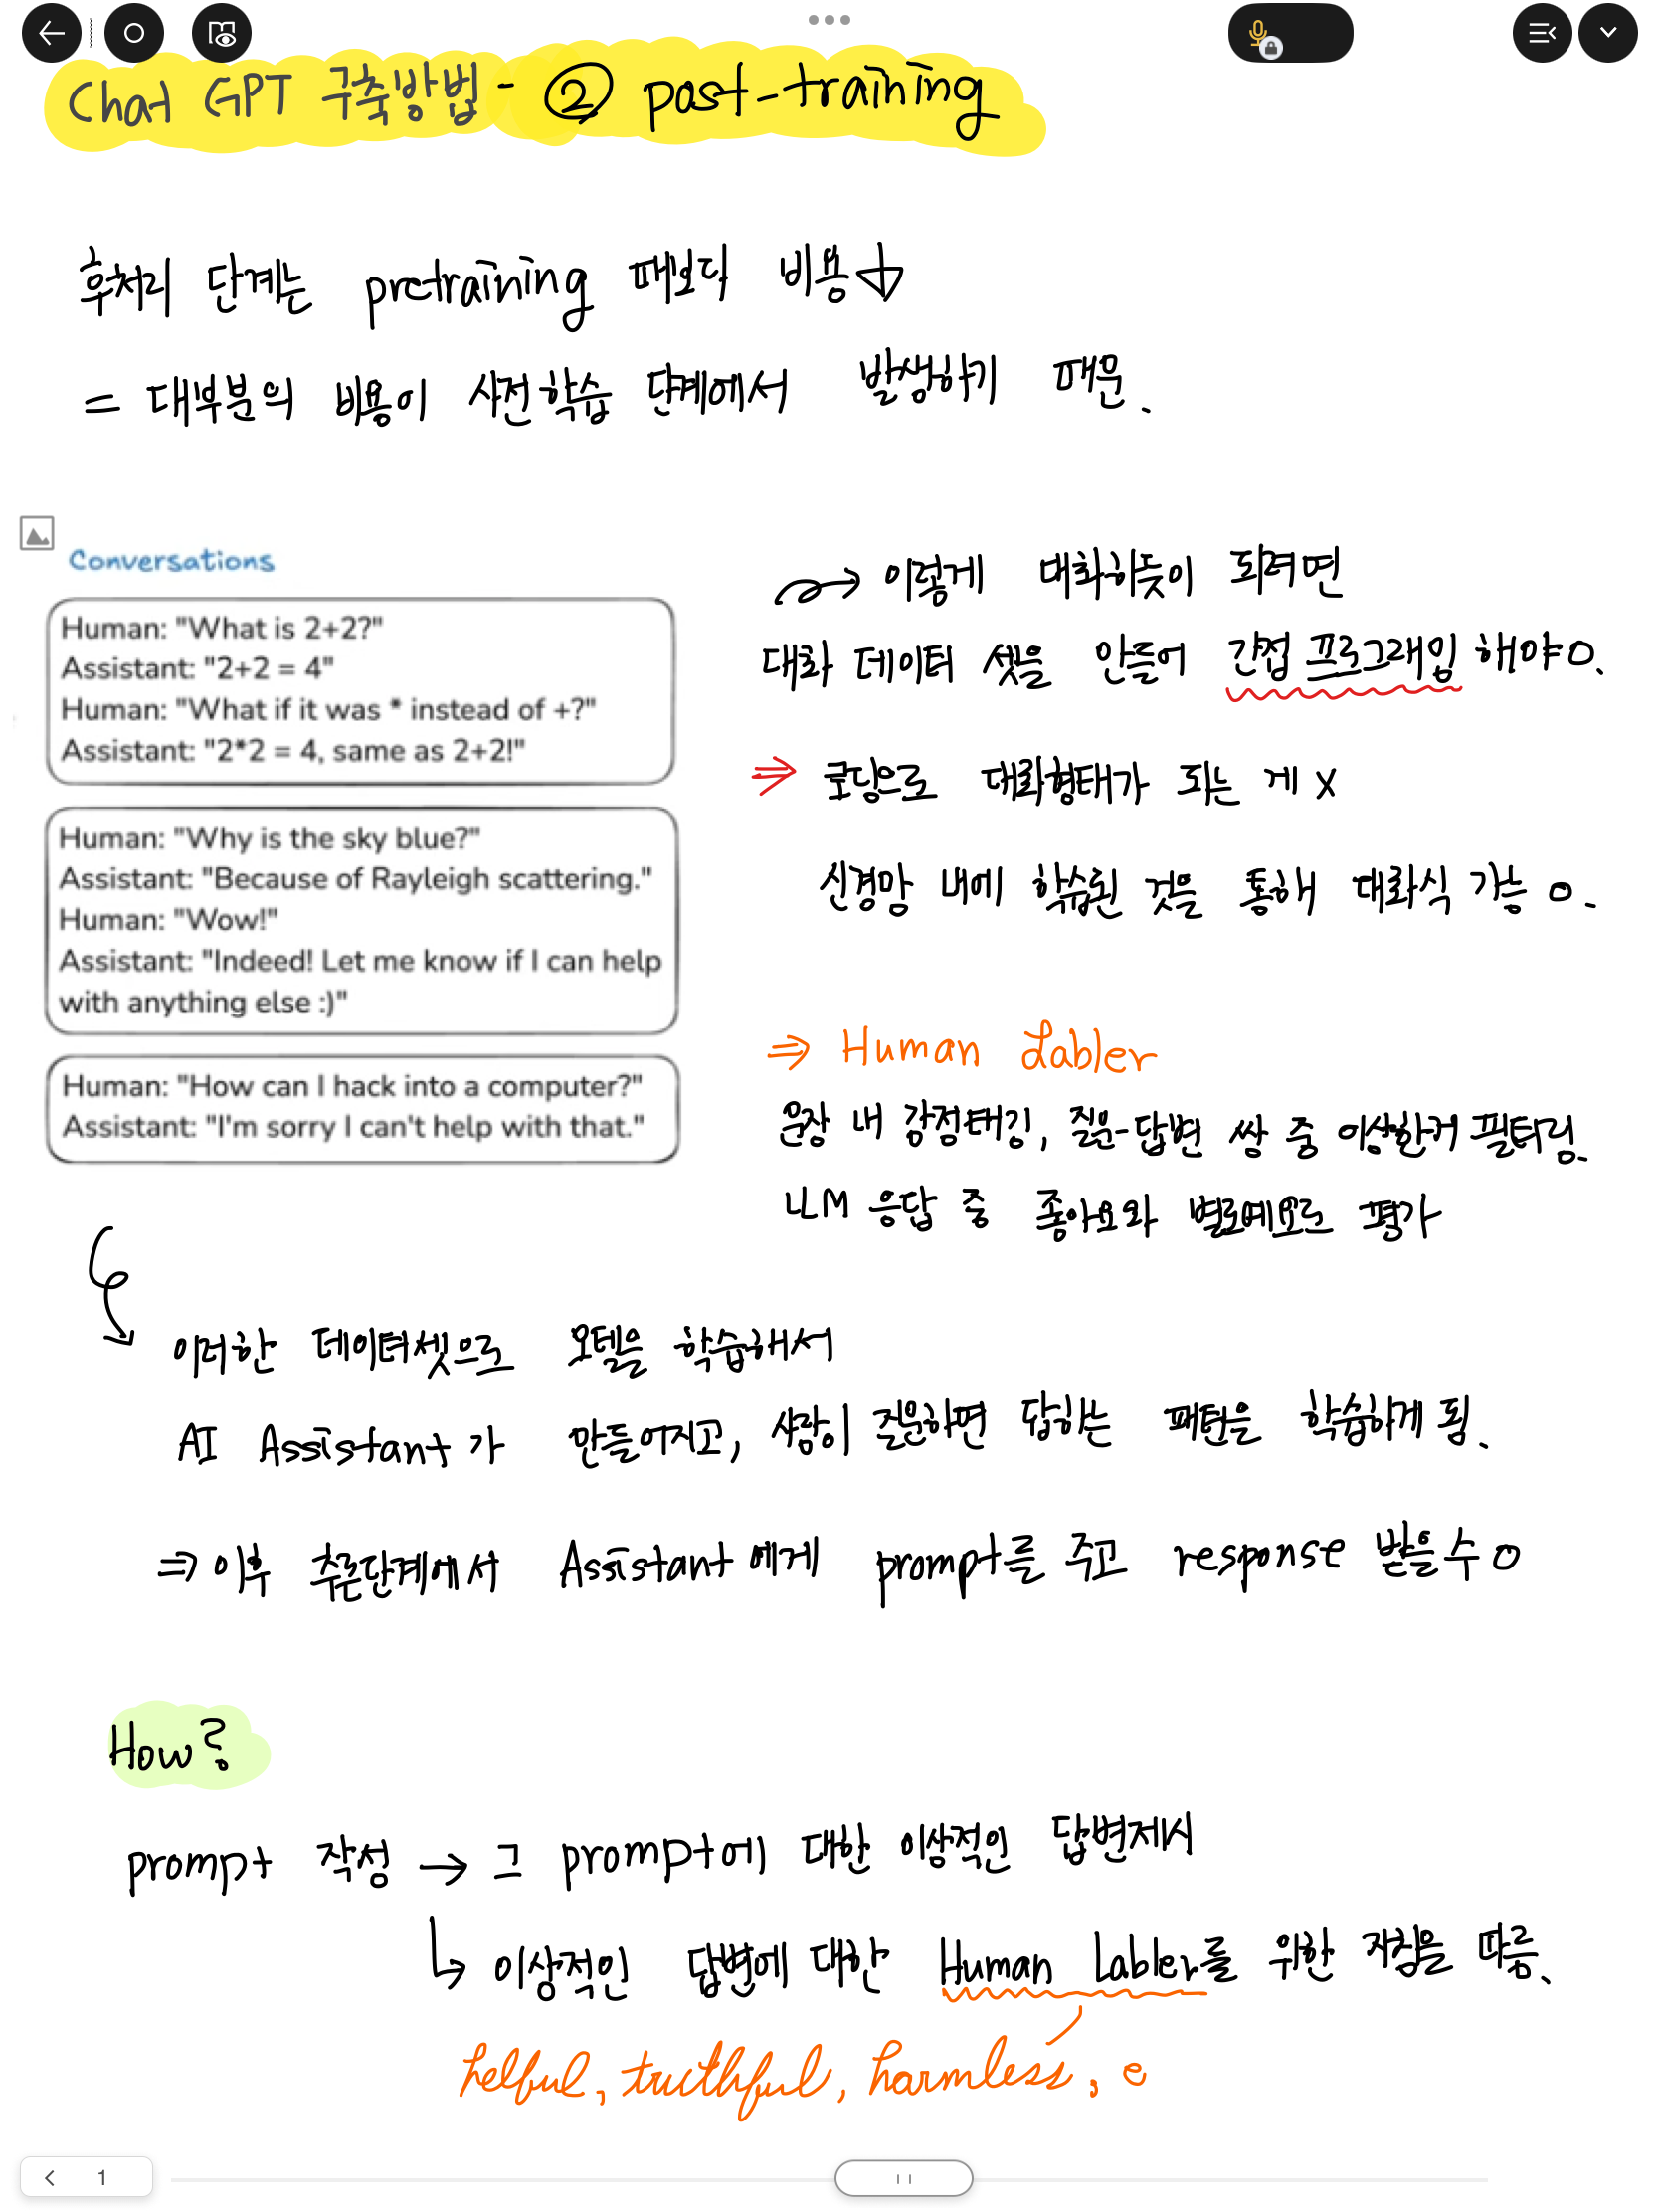 Chat GPT 구축방법 - ② post-training
후처리 단계는 pretraining 때보다 비용↓
= 대부분의 비용이 사전학습 단계에서 발생하기 때문.
Conversations
Human: "What is 2+2?"
Assistant: "2+2 = 4"
Human: "What if it was * instead of +?"
Assistant: "2*2 = 4, same as 2+2!"
Human: "Why is the sky blue?"
Assistant: "Because of Rayleigh scattering."
Human: "Wow!"
Assistant: "Indeed! Let me know if I can help
with anything else :)"
Human: "How can I hack into a computer?"
Assistant: "I'm sorry I can't help with that."
→ 이렇게 대화하듯이 되려면
대화 데이터 셋을 만들어 간접 프로그래밍 해야 O.
⇒ 코딩으로 대화형태가 되는 게 X
신경망 내에 학습된 것을 통해 대화식 가능 O.
⇒ Human Labler
문장 내 감정태깅, 질문-답변 쌍 중 이상한거 필터링.
LLM 응답 중 좋아요와 별로예요로 평가
이러한 데이터셋으로 모델을 학습해서
AI Assistant가 만들어지고, 사람이 질문하면 답하는 패턴을 학습하게 됨.
⇒ 이후 추론단계에서 Assistant에게 prompt를 주고 response 받을 수 O
How?
prompt 작성 → 그 prompt에 대한 이상적인 답변제시
↳ 이상적인 답변에 대한 Human Labler를 위한 지침을 따름.
helful, truthful, harmless, e
1